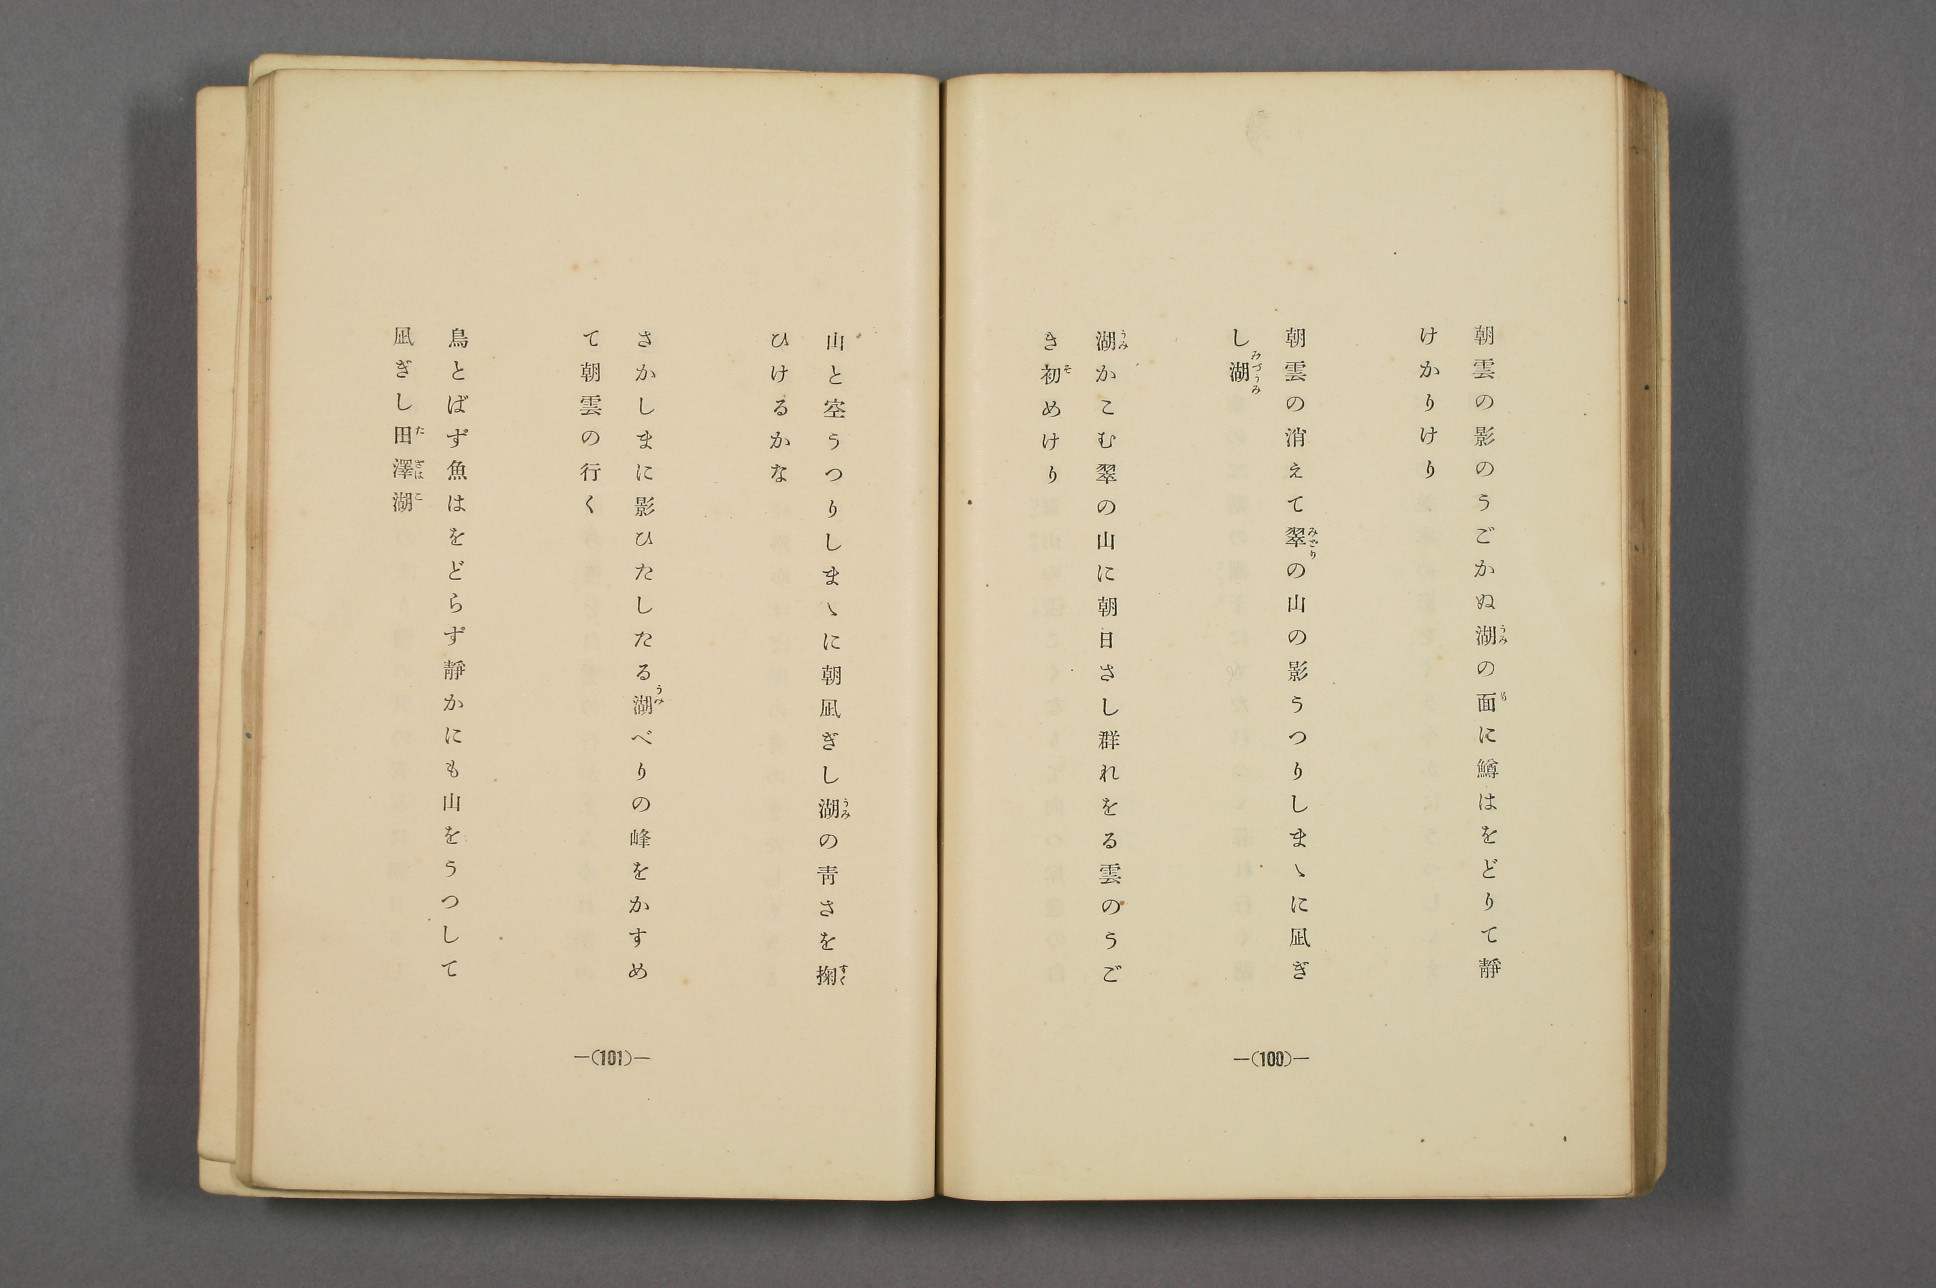 朝雲の影のうごかぬ湖の面に鱒はをどりて靜
けかりけり
朝雲の消えて翠の山の影うつりしまゝに凪ぎ
し湖
湖かこむ翠の山に朝日さし群れをる雲のうご
き初めけり
―(100)―
山と空うつりしまゝに朝凪ぎし湖の靑さを掬
ひけるかな
さかしまに影ひたしたる湖べりの峰をかすめ
て朝雲の行く
鳥とばず魚はをどらず靜かにも山をうつして
凪ぎし田澤湖
―(101)―